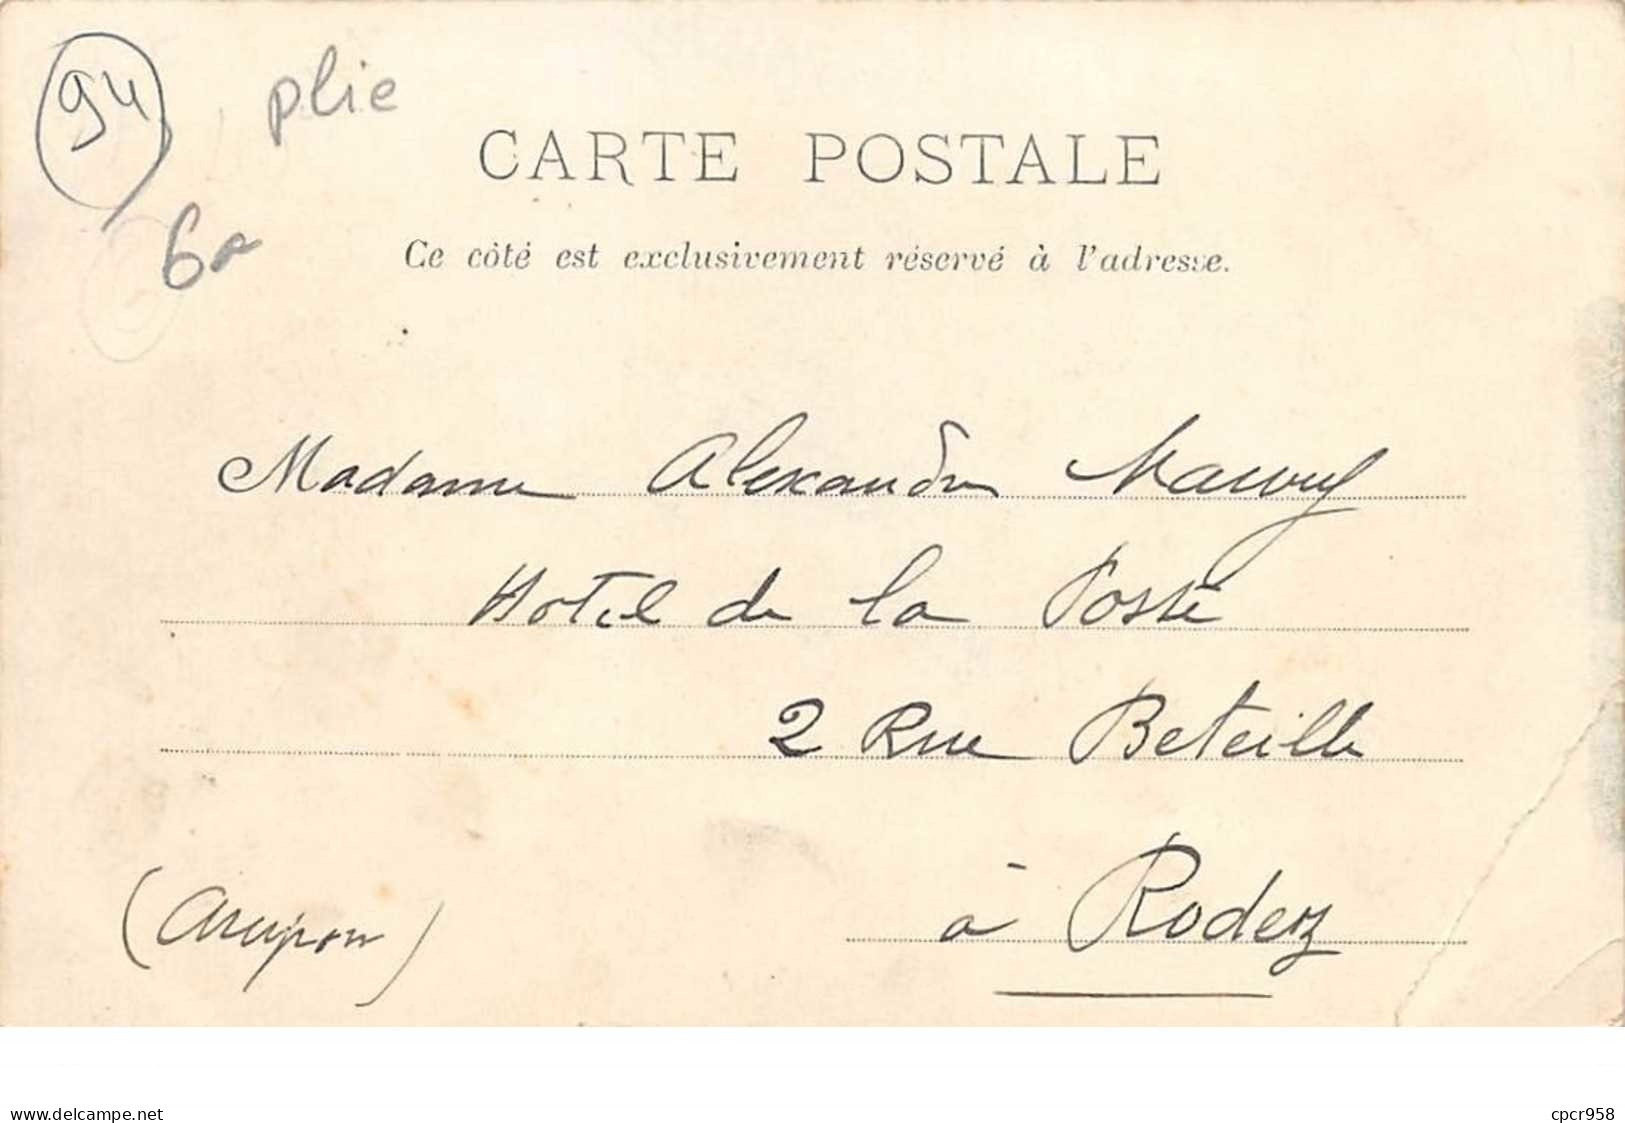 94
plie
CARTE POSTALE
Ce côté est exclusivement réservé à l'adresse.
Madame Alexandre
Hotel de la Poste
2 Rue Beteille
à Rodez
(Aveyron)
www.delcampe.net
cpcr958